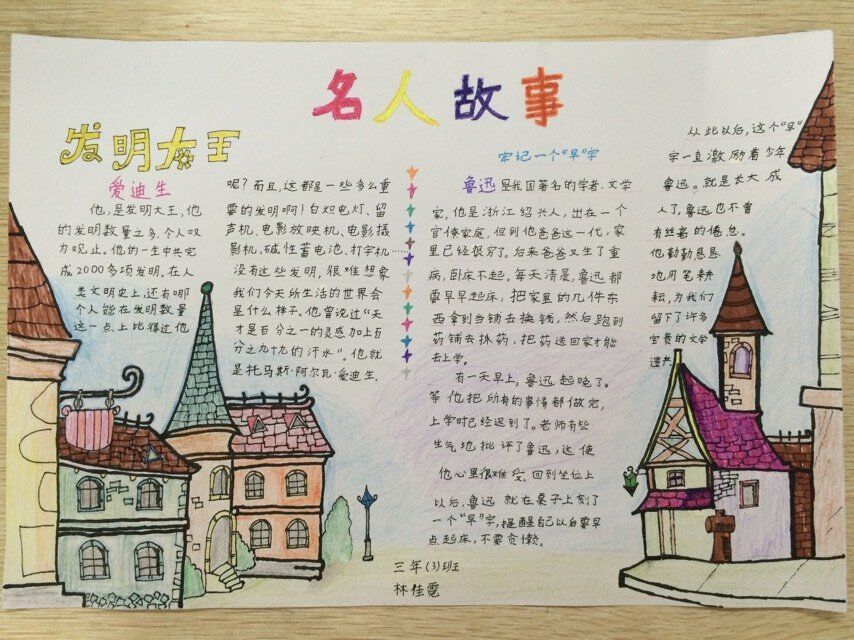 名人故事
发明大王
爱迪生
他，是发明大王，他
的发明数量之多，令人叹
为观止。他的一生中共完
成2000多项发明。在人
类文明史上，还有哪
个人能在发明数量
这一点上比得过他
呢？而且，这都是一些多么重
要的发明啊！白炽电灯、留
声机、电影放映机、电影摄
影机、碱性蓄电池、打字机……
没有这些发明，很难想象
我们今天所生活的世界会
是什么样子。他曾说过“天
才是百分之一的灵感加上百
分之九十九的汗水”。他就
是托马斯·阿尔瓦·爱迪生。
牢记一个“早”字
鲁迅是我国著名的学者、文学
家，他是浙江绍兴人，出在一个
官僚家庭，但到他爸爸这一代，家
里已经很穷了。后来爸爸又生了重
病，卧床不起。每天清晨，鲁迅都
要早早起床，把家里的几件东
西拿到当铺去换钱，然后跑到
药铺去抓药，把药送回家才能
去上学。
有一天早上，鲁迅起晚了。
等他把所有的事情都做完，
上学时已经迟到了。老师有些
生气地批评了鲁迅，这使
他心里很难受。回到坐位上
以后，鲁迅就在桌子上刻了
一个“早”字，提醒自己以后要早
点起床，不要贪懒。
从此以后，这个“早”
字一直激励着少年
鲁迅。就是长大成
人了，鲁迅也不曾
有丝毫的倦怠。
他勤勤恳恳
地用笔耕
耘，为我们
留下了许多
宝贵的文学
遗产。
三年(3)班
林佳霓